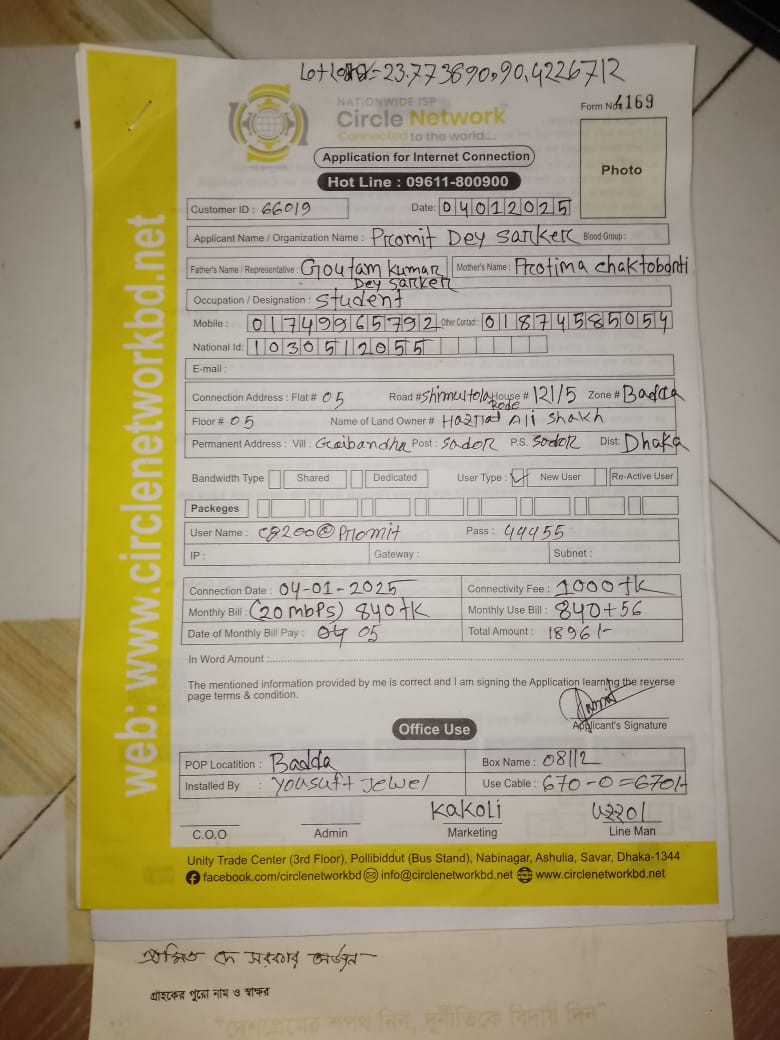 Lat Long = 23.773890,90.4226712
NATIONWIDE ISP
Circle Network
Connected to the world....
Form No. 4169
Application for Internet Connection
Photo
Hot Line : 09611-800900
Customer ID : 66019 Date: 04012025
Applicant Name / Organization Name : Promit Dey Sarker Blood Group :
Father's Name / Representative : Goutam Kumar Dey Sarker Mother's Name : Protima Chaktobonti
Occupation / Designation : Student
Mobile : 01749965792 Other Contact : 01874585054
National Id: 1030512055
E-mail :
Connection Address : Flat # 05 Road # Shimultola Rode House # 121/5 Zone # Badda
Floor # 05 Name of Land Owner # Hazrat Ali Shakh
Permanent Address : Vill : Gaibandha Post : Sador P.S. Sodor Dist: Dhaka
Bandwidth Type Shared Dedicated User Type : New User Re-Active User
Packeges
User Name : @Promit Pass : 44455
IP : Gateway : Subnet :
Connection Date : 04-01-2025 Connectivity Fee : 1000 tk
Monthly Bill : (20 mbps) 840 tk Monthly Use Bill : 840+56
Date of Monthly Bill Pay : 05 Total Amount : 1896/-
In Word Amount :
The mentioned information provided by me is correct and I am signing the Application learning the reverse
page terms & condition.
Applicant's Signature
Office Use
POP Locatition : Badda Box Name : 08112
Installed By : Yousuf+Jewel Use Cable : 670-0=670/-
Kakoli
C.O.O Admin Marketing Line Man
Unity Trade Center (3rd Floor), Pollibiddut (Bus Stand), Nabinagar, Ashulia, Savar, Dhaka-1344
facebook.com/circlenetworkbd info@circlenetworkbd.net www.circlenetworkbd.net
web: www.circlenetworkbd.net
প্রমিত দে সরকার অর্জুন
গ্রাহকের পুরো নাম ও স্বাক্ষর
"দেশপ্রেমের শপথ নিন, দুর্নীতিকে বিদায় দিন"